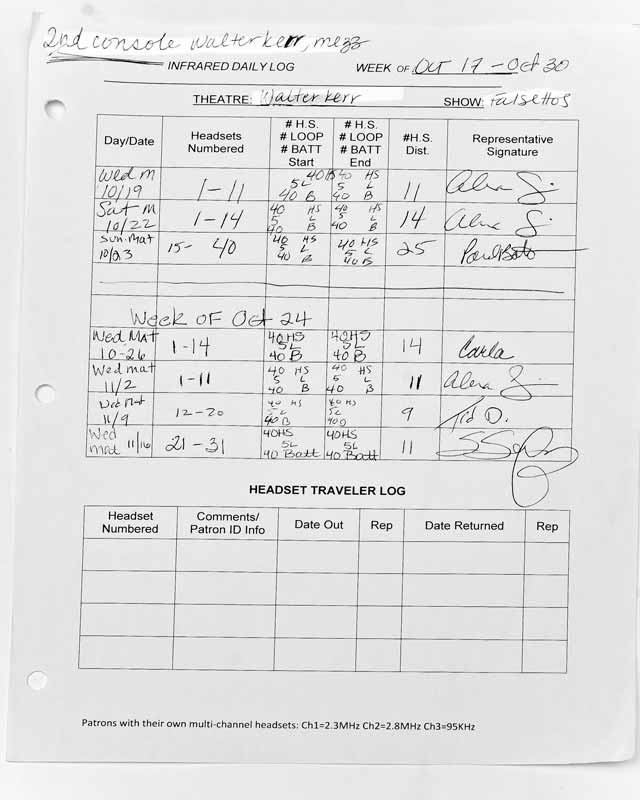 2nd console Walter Kerr, mezz
INFRARED DAILY LOG WEEK OF Oct 17 - Oct 30
THEATRE: Walter Kerr SHOW: Falsettos
Day/Date Headsets Numbered # H.S. # LOOP # BATT Start # H.S. # LOOP # BATT End #H.S. Dist. Representative Signature
Wed m 10/19 1-11 40HS 5L 40 B 40 HS 5 L 40 B 11
Sat m 10/22 1-14 40 HS 5 L 40 B 40 HS 5 L 40 B 14
Sun. Mat 10/23 15- 40 40 HS 5 L 40 B 40 HS 5 L 40 B 25
Week of Oct 24
Wed Mat 10-26 1-14 40HS 5L 40 B 40HS 5L 40 B 14 Carla
Wed mat 11/2 1-11 40 HS 5 L 40 B 40 HS 5 L 40 B 11
Wed Mat 11/9 12-20 40 HS 5L 40 B 40 HS 5L 9
Wed mat 11/16 21-31 40HS 5L 40 Batt 40HS 5L 40 Batt 11
HEADSET TRAVELER LOG
Headset Numbered Comments/ Patron ID Info Date Out Rep Date Returned Rep
Patrons with their own multi-channel headsets: Ch1=2.3MHz Ch2=2.8MHz Ch3=95KHz